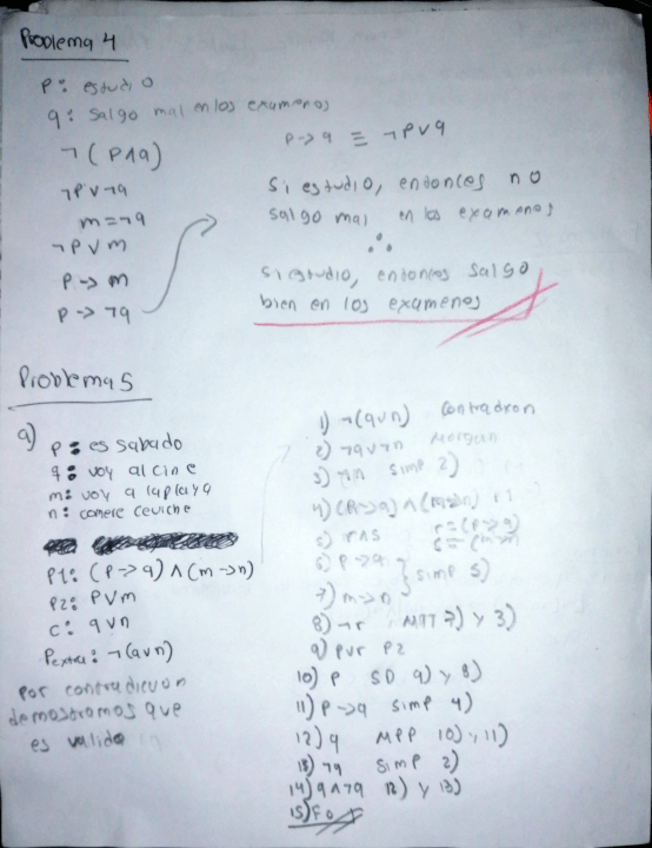 Problema 4
p: estudio
q: salgo mal en los examenes
¬(p∧q)
¬p∨¬q
m=¬q
¬p∨m
p->m
p->¬q
p->q ≡ ¬p∨q
Si estudio, entonces no
salgo mal en los examenes
∴
Si estudio, entonces salgo
bien en los examenes
Problema 5
a)
p: es sabado
q: voy al cine
m: voy a la playa
n: comere ceviche
P1: (p->q)∧(m->n)
P2: p∨m
C: q∨n
Pextra: ¬(q∨n)
por contradicion
demostramos que
es valida
1) ¬(q∨n)
2) ¬q∨¬n Morgan
3) ¬n simp 2)
4) (p->q)∧(m->n) P1
5) r∧s r=(p->q)
6) p->q
7) m->n } simp 5)
8) ¬r MTT 7) y 3)
9) p∨r P2
10) p SD 9) y 8)
11) p->q simp 4)
12) q MPP 10) y 11)
13) ¬q simp 2)
14) q∧¬q 12) y 13)
15) Fo